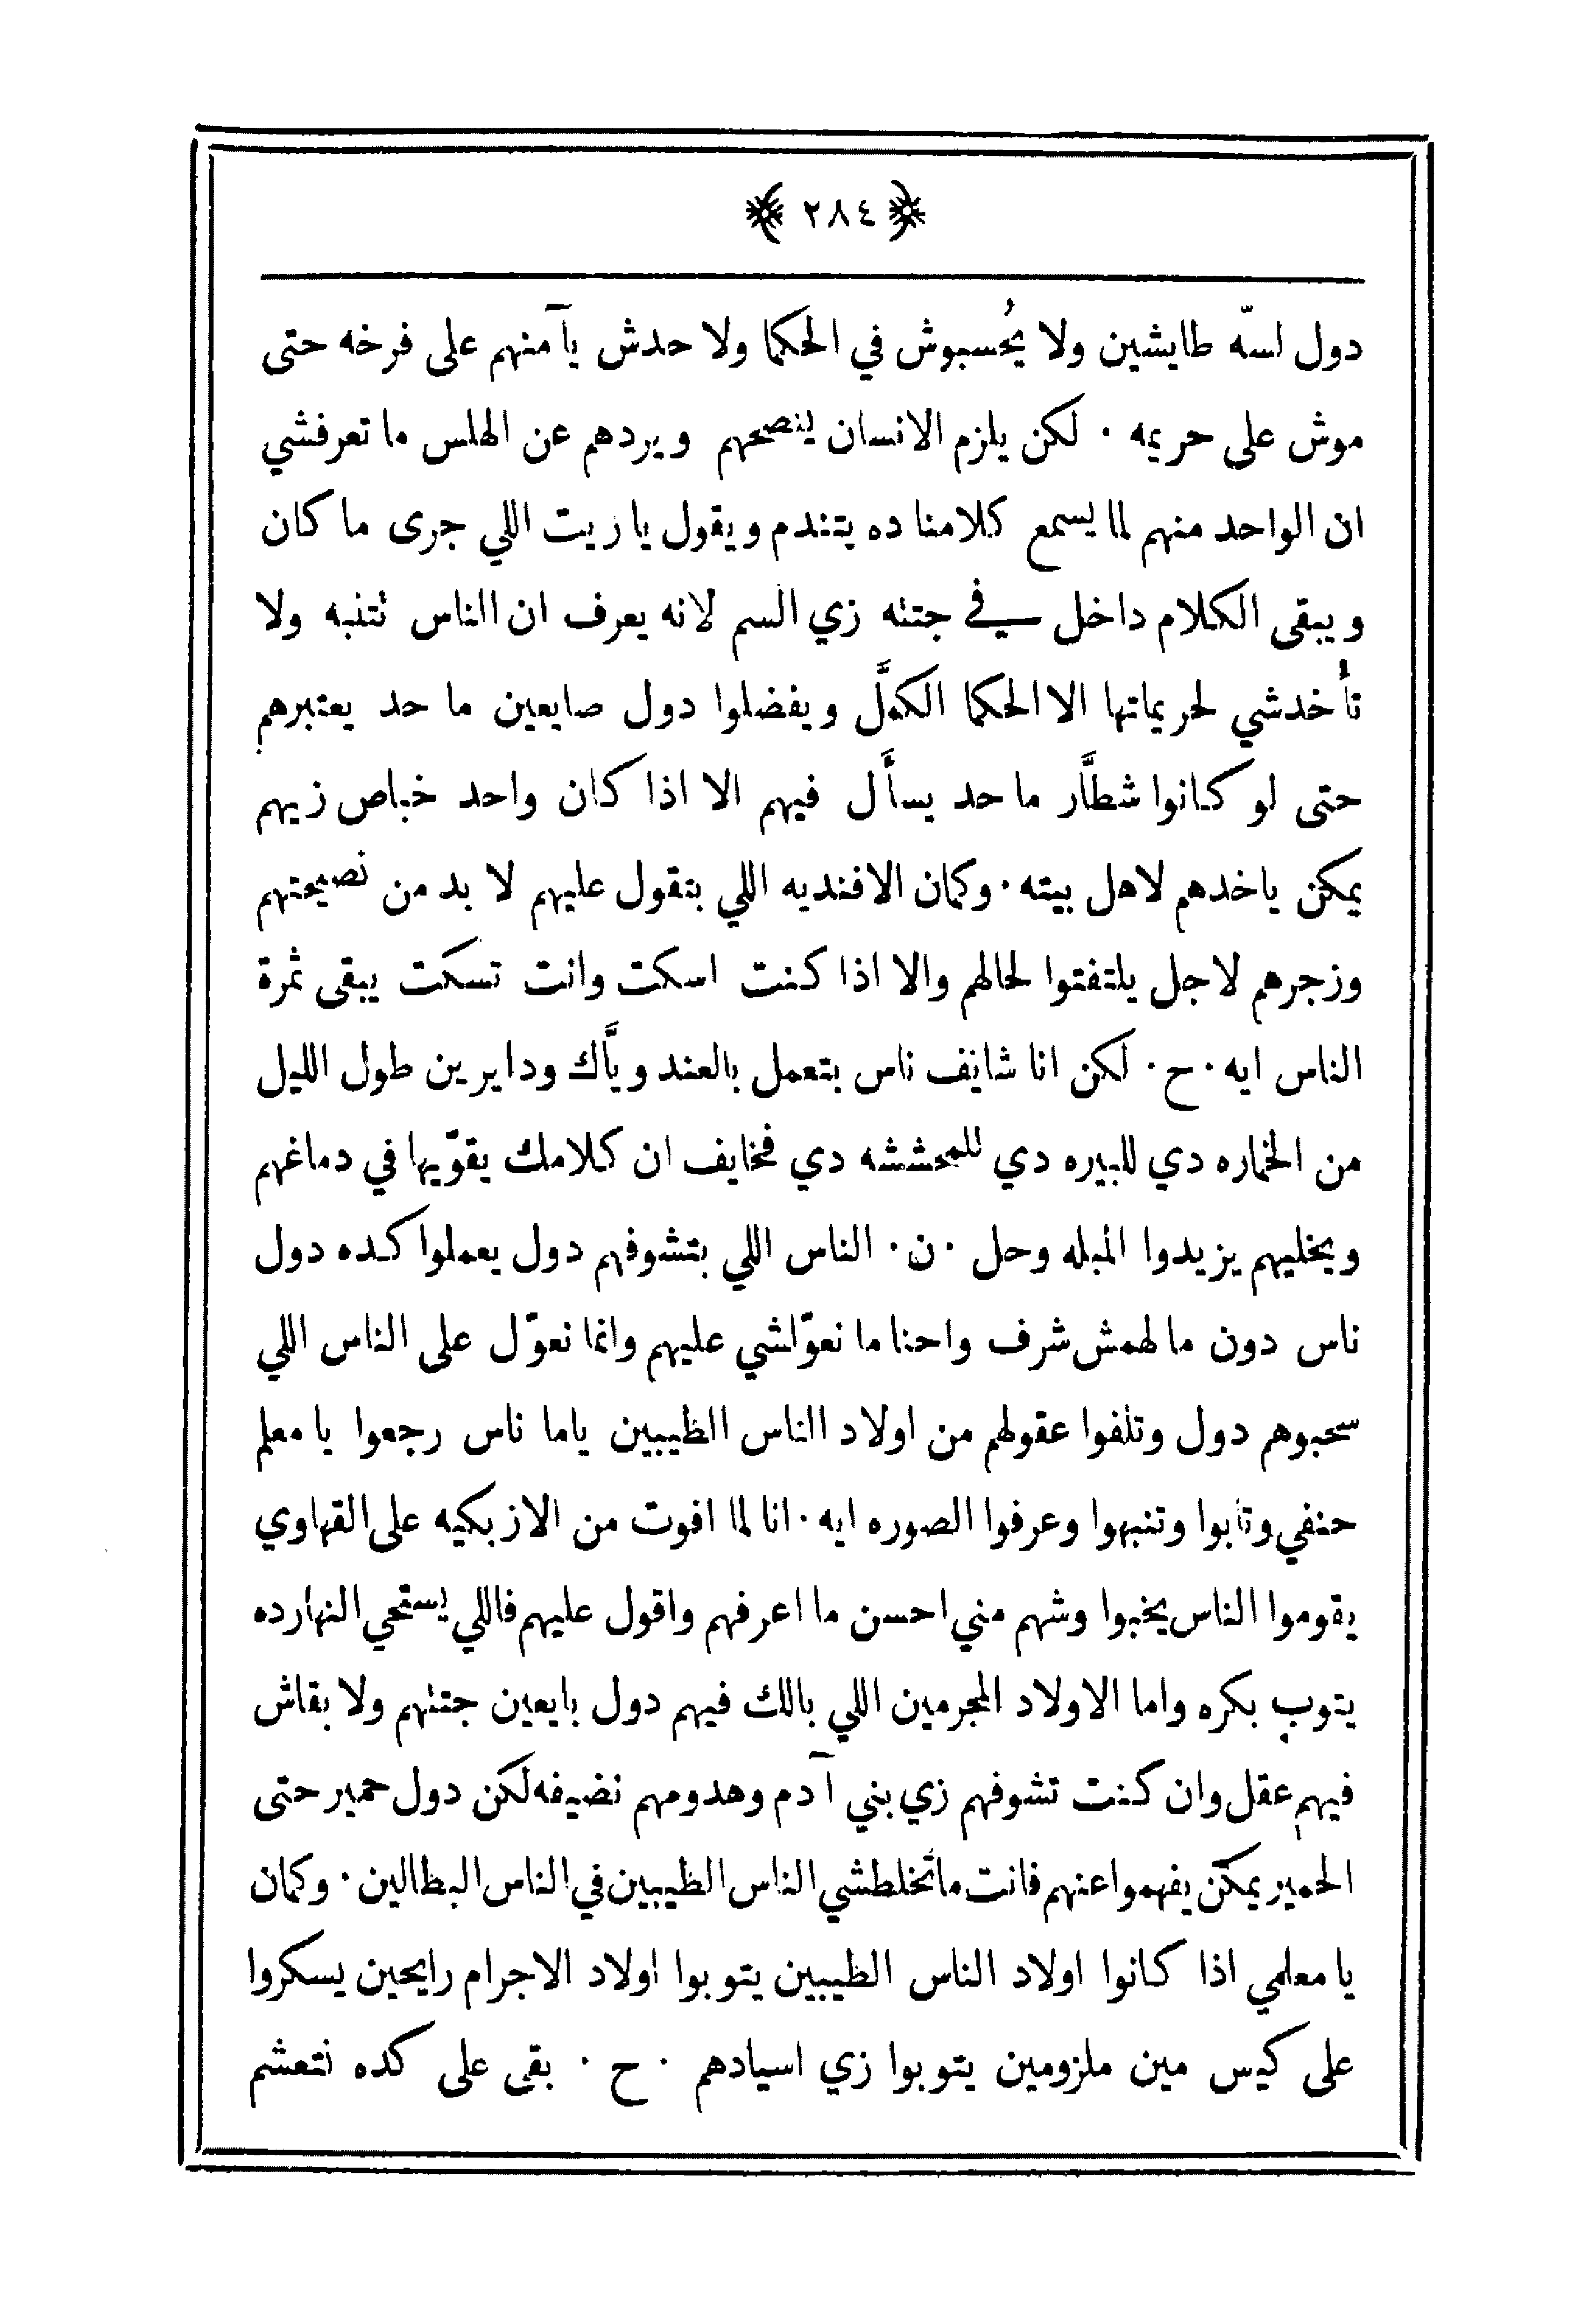 ﴿ ٢٨٤ ﴾
دول لسّه طايشين ولا يُحسبوش في الحكما ولا حدش يآمنهم على فرخه حتى
موش على حريمه ٠ لكن يلزم الانسان لينصحهم ويردهم عن الهلس ما تعرفشي
ان الواحد منهم لما يسمع كلامنا ده يتندم ويقول يا زيت اللي جرى ما كان
ويبقى الكلام داخل في جتته زي السم لانه يعرف ان الناس تتنبه ولا
تأخدشي لحريماتها الا الحكما الكمَّل ويفضلوا دول صايعين ما حد يعتبرهم
حتى لو كانوا شطَّار ما حد يسأل فيهم الا اذا كان واحد خباص زيهم
يمكن ياخدهم لاهل بيته ٠ وكمان الافنديه اللي بتقول عليهم لا بد من نصيحتهم
وزجرهم لاجل يلتفتوا لحالهم والا اذا كنت اسكت وانت تسكت يبقى ثمرة
الناس ايه ٠ ح ٠ لكن انا شايف ناس بتعمل بالعند ويَّاك ودايرين طول الليل
من الخماره دي للبيره دي للمحششه دي فخايف ان كلامك يقوّيها في دماغهم
ويخليهم يزيدوا المبله وحل ٠ ن ٠ الناس اللي بتشوفهم دول يعملوا كده دول
ناس دون ما لهمش شرف واحنا ما نعوّلشي عليهم وانما نعوّل على الناس اللي
سحبوهم دول وتلفوا عقولهم من اولاد الناس الطيبين ياما ناس رجعوا يا معلم
حنفي وتابوا وتنبهوا وعرفوا الصوره ايه ٠ انا لما افوت من الازبكيه على القهاوي
يقوموا الناس يخبوا وشهم مني احسن ما اعرفهم واقول عليهم فاللي يستحي النهارده
يتوب بكره واما الاولاد المجرمين اللي بالك فيهم دول بايعين جتتهم ولا بقاش
فيهم عقل وان كنت تشوفهم زي بني آدم وهدومهم نضيفه لكن دول حمير حتى
الحمير يمكن يفهموا عنهم فانت ما تخلطشي الناس الطيبين في الناس البطالين ٠ وكمان
يا معلمي اذا كانوا اولاد الناس الطيبين يتوبوا اولاد الاجرام رايحين يسكروا
على كيس مين ملزومين يتوبوا زي اسيادهم ٠ ح ٠ بقى على كده نتعشم